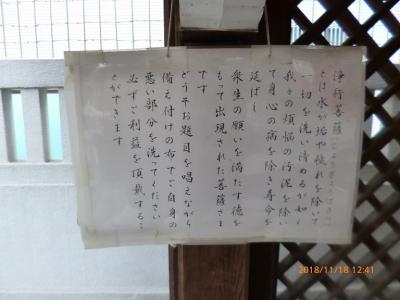 浄行菩薩(じょうぎょうぼさつ)
とは水が垢や穢れを除いて
一切を洗い清めるが如く
我々の煩悩の汚泥を除い
て身心の病を除き寿命を
延ばし
衆生の願いを満たす徳を
もって出現された菩薩さま
です
どうぞお題目を唱えながら
備え付けの布でご自身の
悪い部分を洗ってください
必ずご利益を頂戴するこ
とができます
2018/11/18 12:41